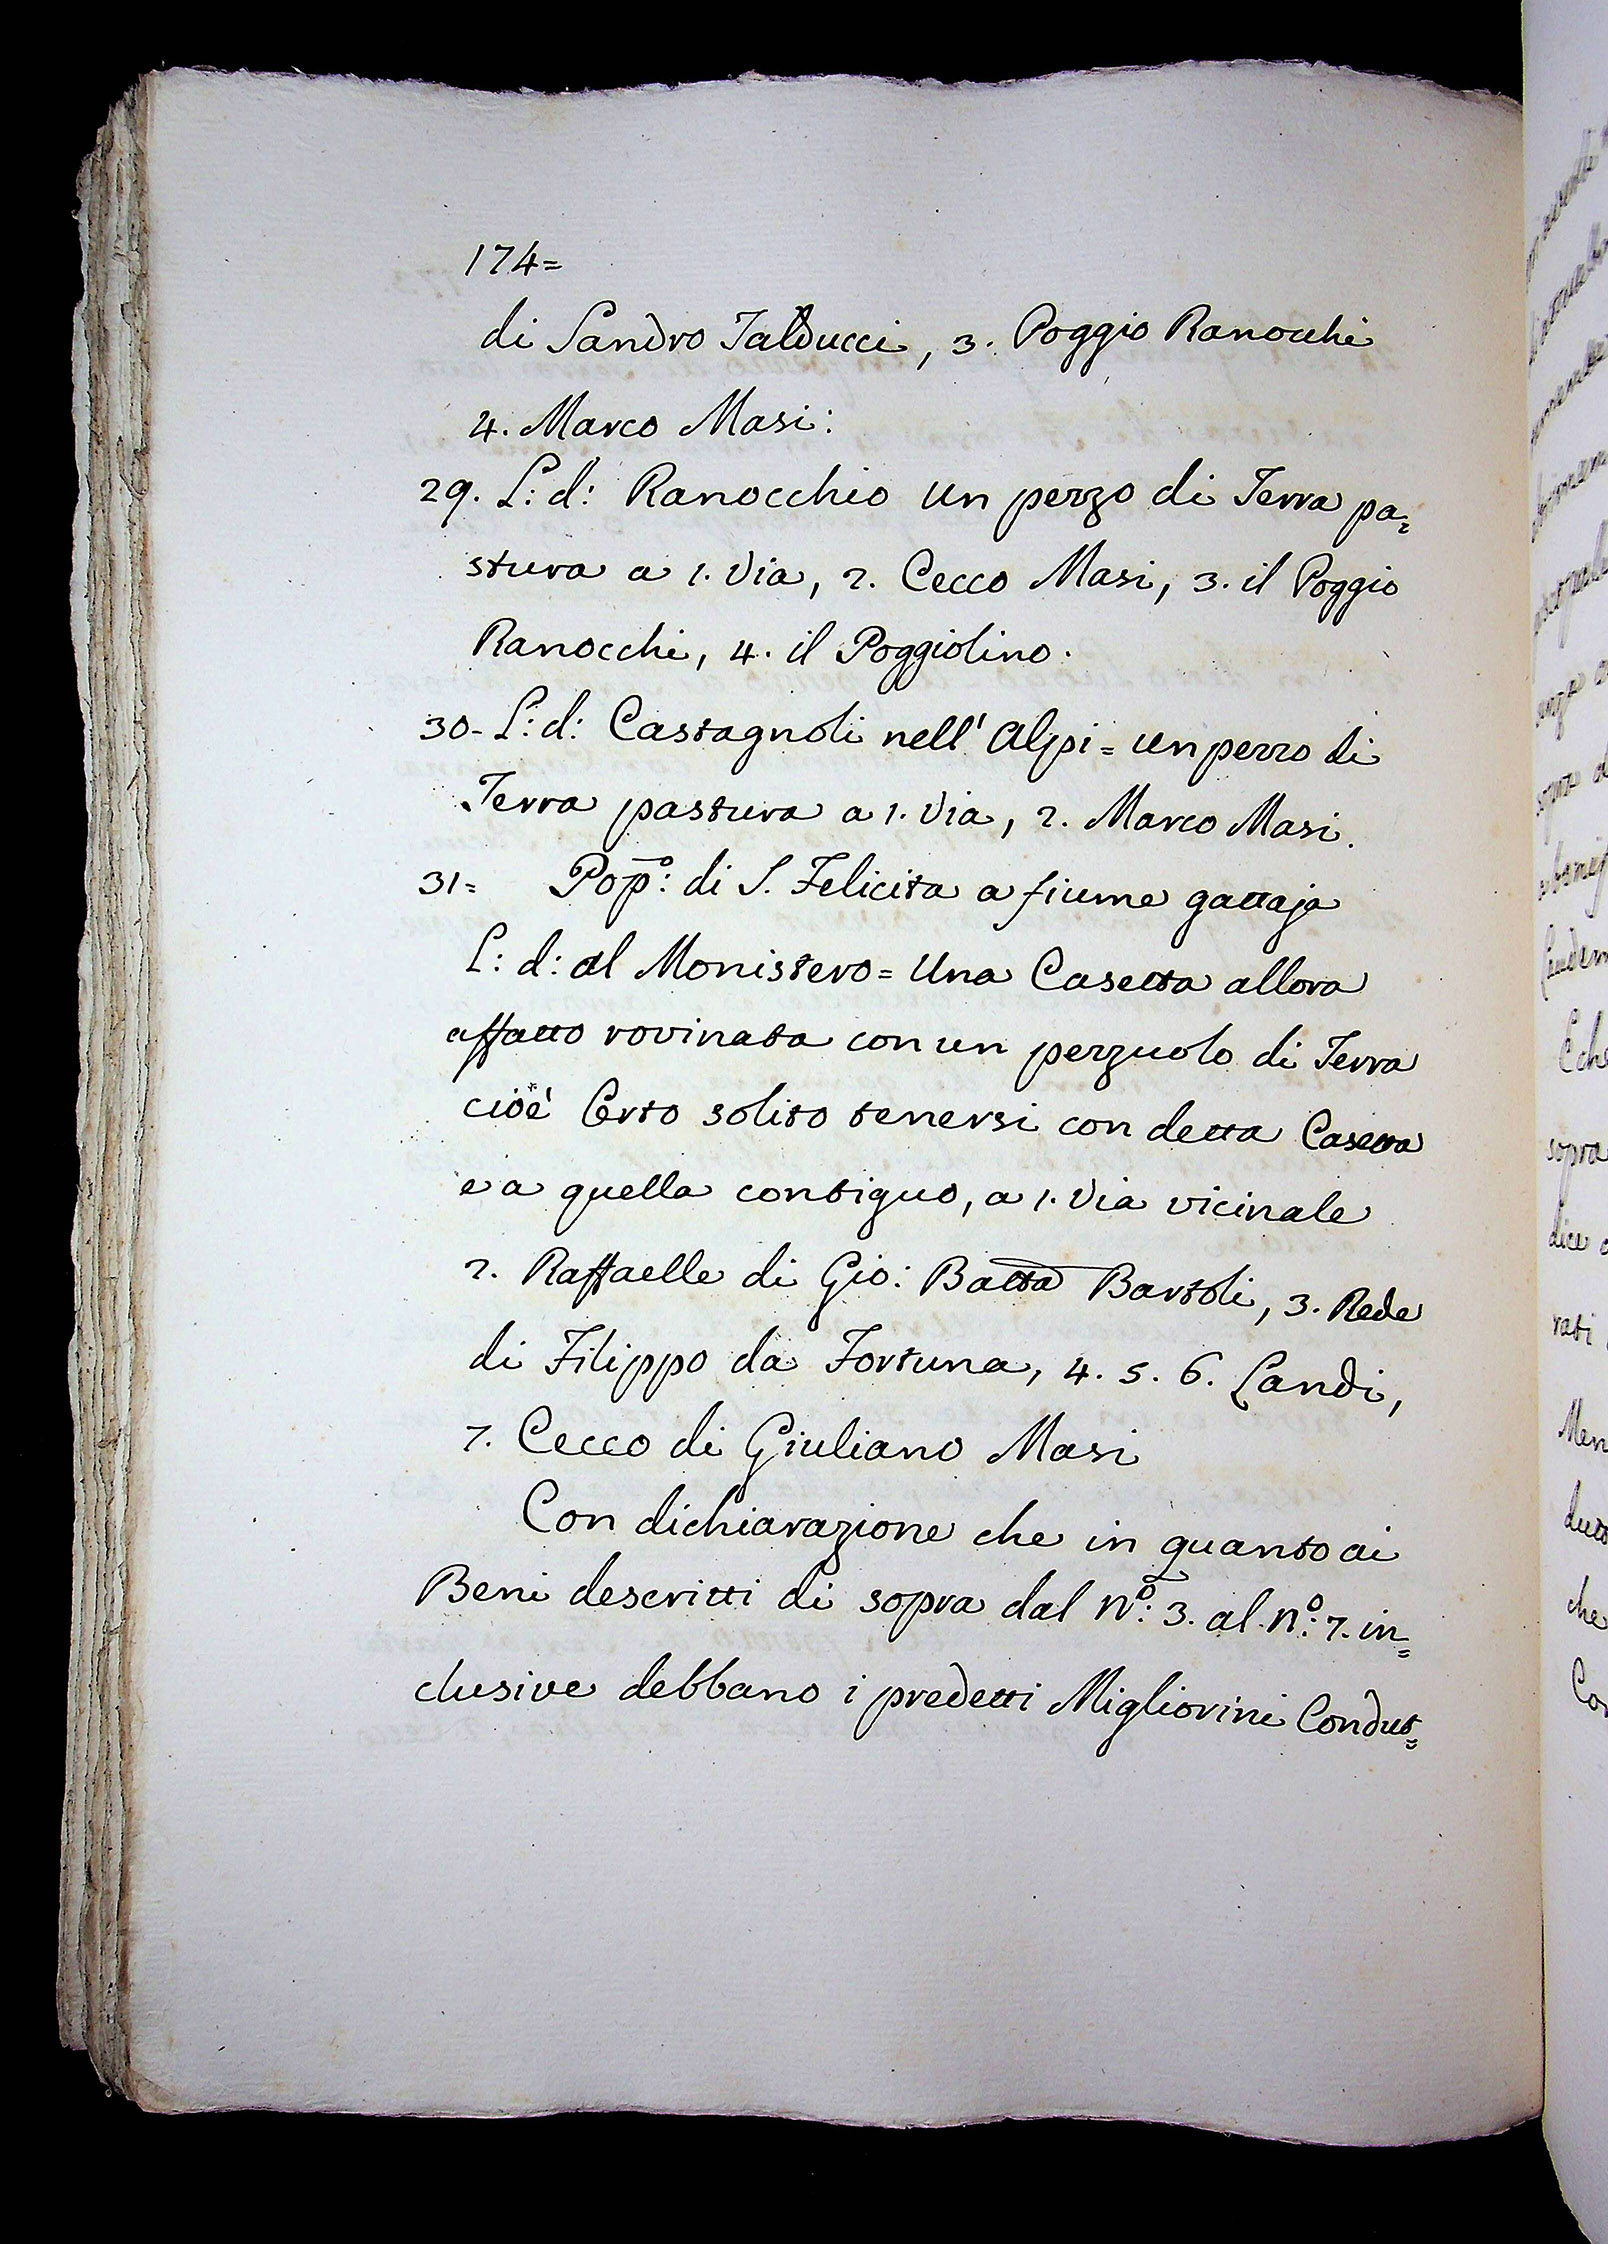 174=
di Sandro Talducci, 3. Poggio Ranocchi
4. Marco Masi:
29. L: d: Ranocchio un pezzo di Terra pa=
stura a 1. Via, 2. Cecco Masi, 3. il Poggio
Ranocchi, 4. il Poggiolino.
30- L: d: Castagnoli nell' Alpi = un pezzo di
Terra pastura a 1. Via, 2. Marco Masi.
31= Pop̄º: di S. Felicita a fiume gattaja
L: d: al Monistero= Una Casetta allora
affatto rovinata con un pezzuolo di Terra
cioè Orto solito tenersi con detta Casetta
e a quella contiguo, a 1. Via vicinale
2. Raffaelle di Gio: Batta Bartoli, 3. Rede
di Filippo da Fortuna, 4. 5. 6. Landi,
7. Cecco di Giuliano Masi
Con dichiarazione che in quanto ai
Beni descritti di sopra dal Nº: 3. al Nº: 7. in=
clusive debbano i predetti Migliorini Condut=